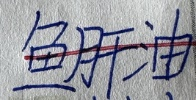 鱼肝油